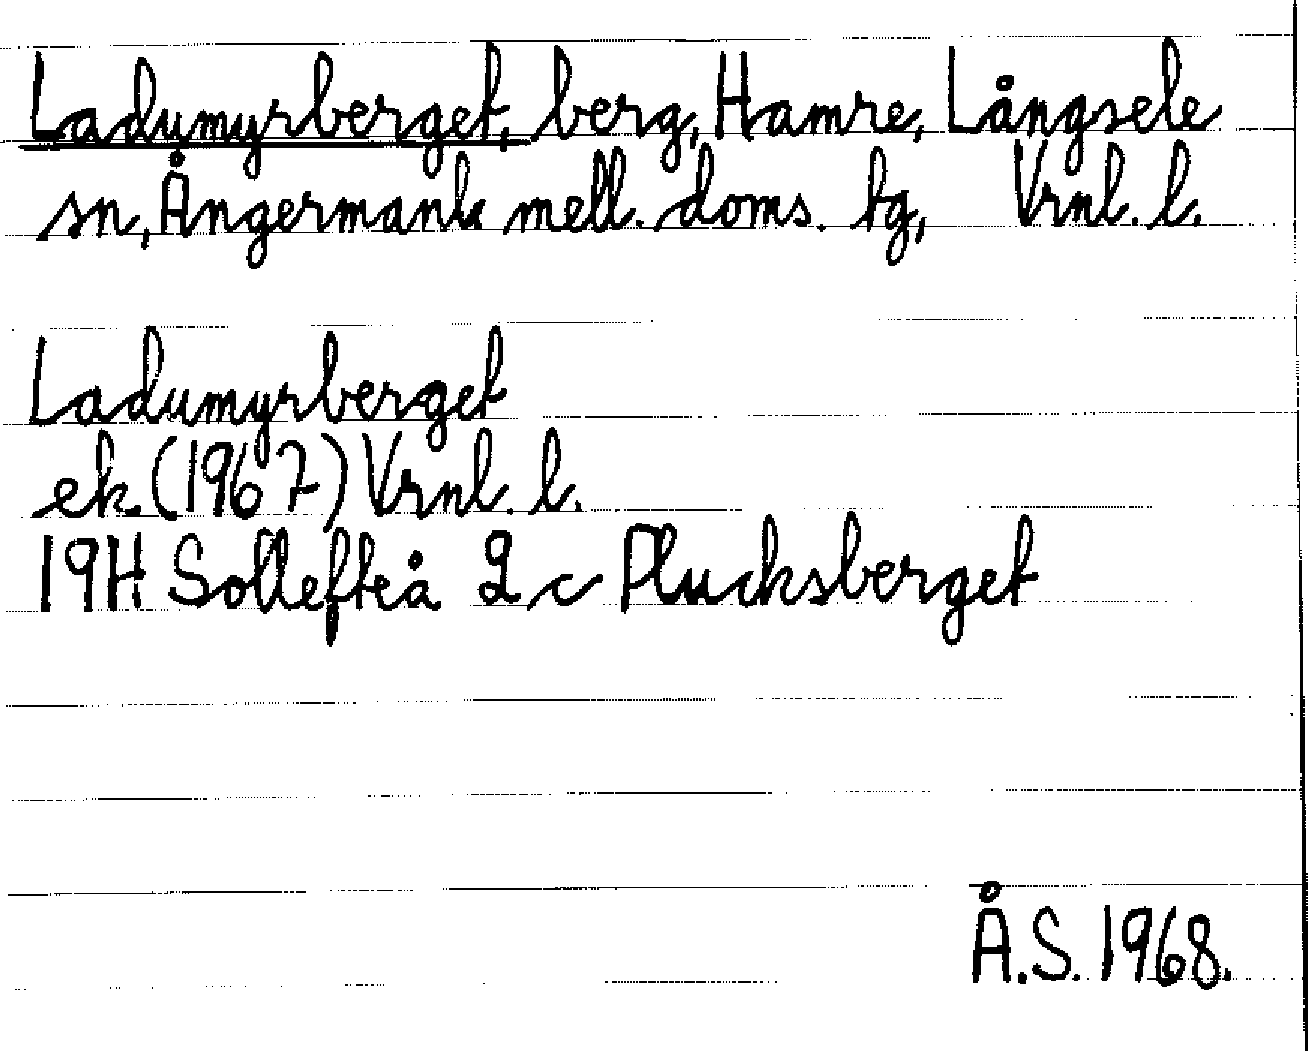 Ladumyrberget, berg, Hamre, Långsele
sn, Ångermanl. mell. doms. tg, Vrnl. l.
Ladumyrberget
ek. (1967) Vrnl. l.
19H Sollefteå 2 c Plucksberget
Å.S. 1968.